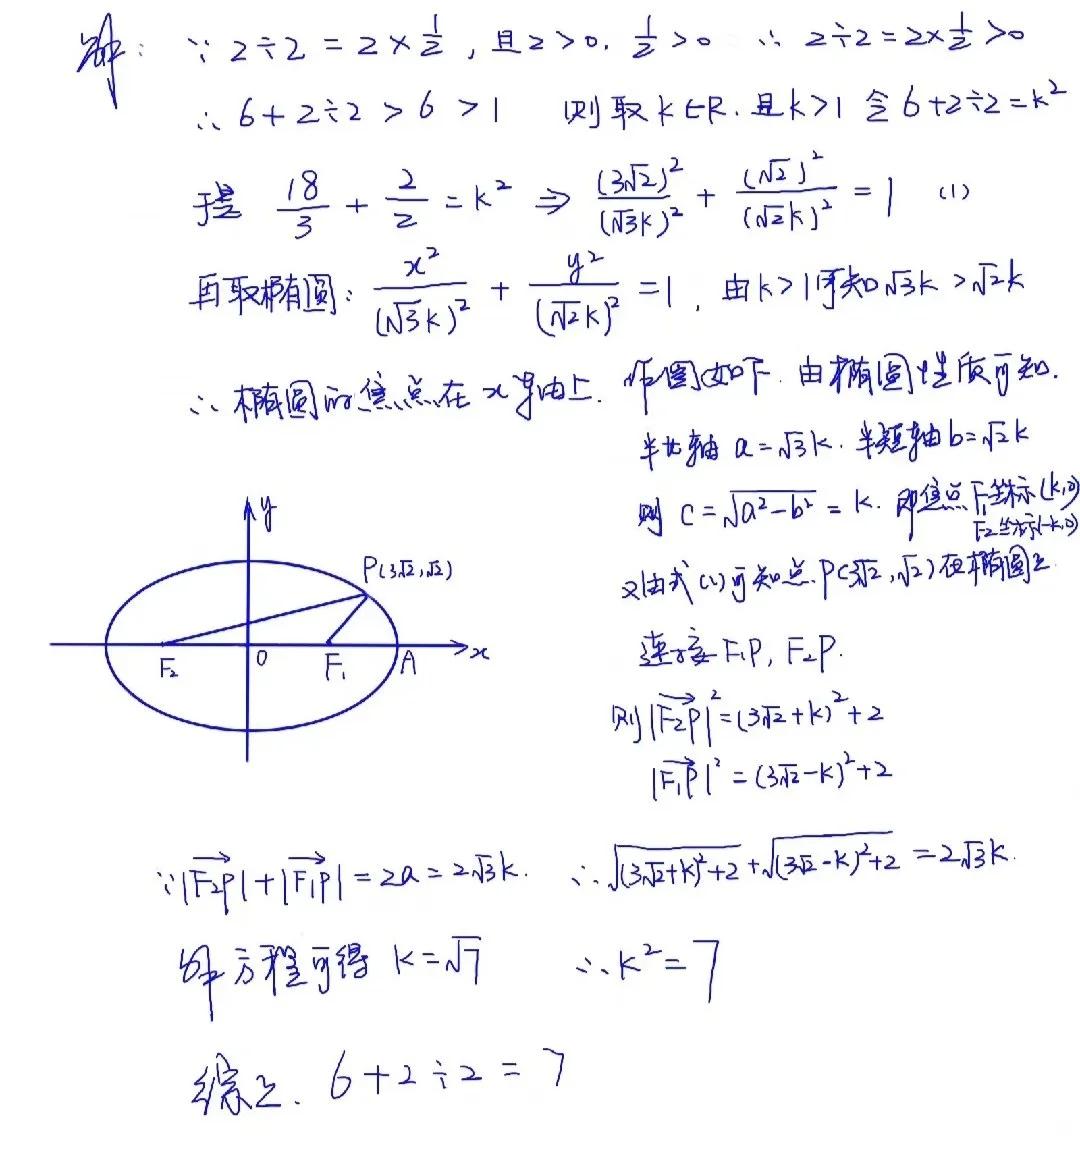 解：∵ 2÷2 = 2×1/2，且2>0，1/2>0 ∴ 2÷2=2×1/2>0
∴ 6+2÷2 > 6 > 1 则取 k∈R. 且k>1 令 6+2÷2=k²
于是 18/3 + 2/2 = k² ⇒ (3√2)²/(√3k)² + (√2)²/(√2k)² = 1 (1)
再取椭圆: x²/(√3k)² + y²/(√2k)² = 1，由k>1可知√3k > √2k
∴ 椭圆的焦点在x轴上. 作图如下. 由椭圆性质可知.
半长轴 a=√3k. 半短轴b=√2k
则 c=√(a²-b²) = k. 即焦点F₁坐标(k,0)
F₂坐标(-k,0)
又由式(1)可知点P(3√2,√2)在椭圆上
连接F₁P, F₂P.
则|F₂P|²=(3√2+k)²+2
|F₁P|²=(3√2-k)²+2
y
P(3√2,√2)
F₂ O F₁ A x
∵|F₂P|+|F₁P|=2a=2√3k. ∴√((3√2+k)²+2)+√((3√2-k)²+2)=2√3k.
解方程可得 k=√7 ∴k²=7
综上. 6+2÷2=7